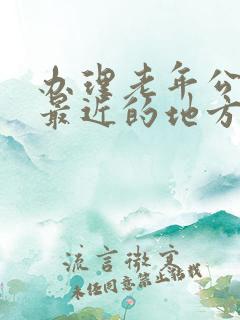 办理老年公
最近的地方
流言微寞
未经同意禁止转载